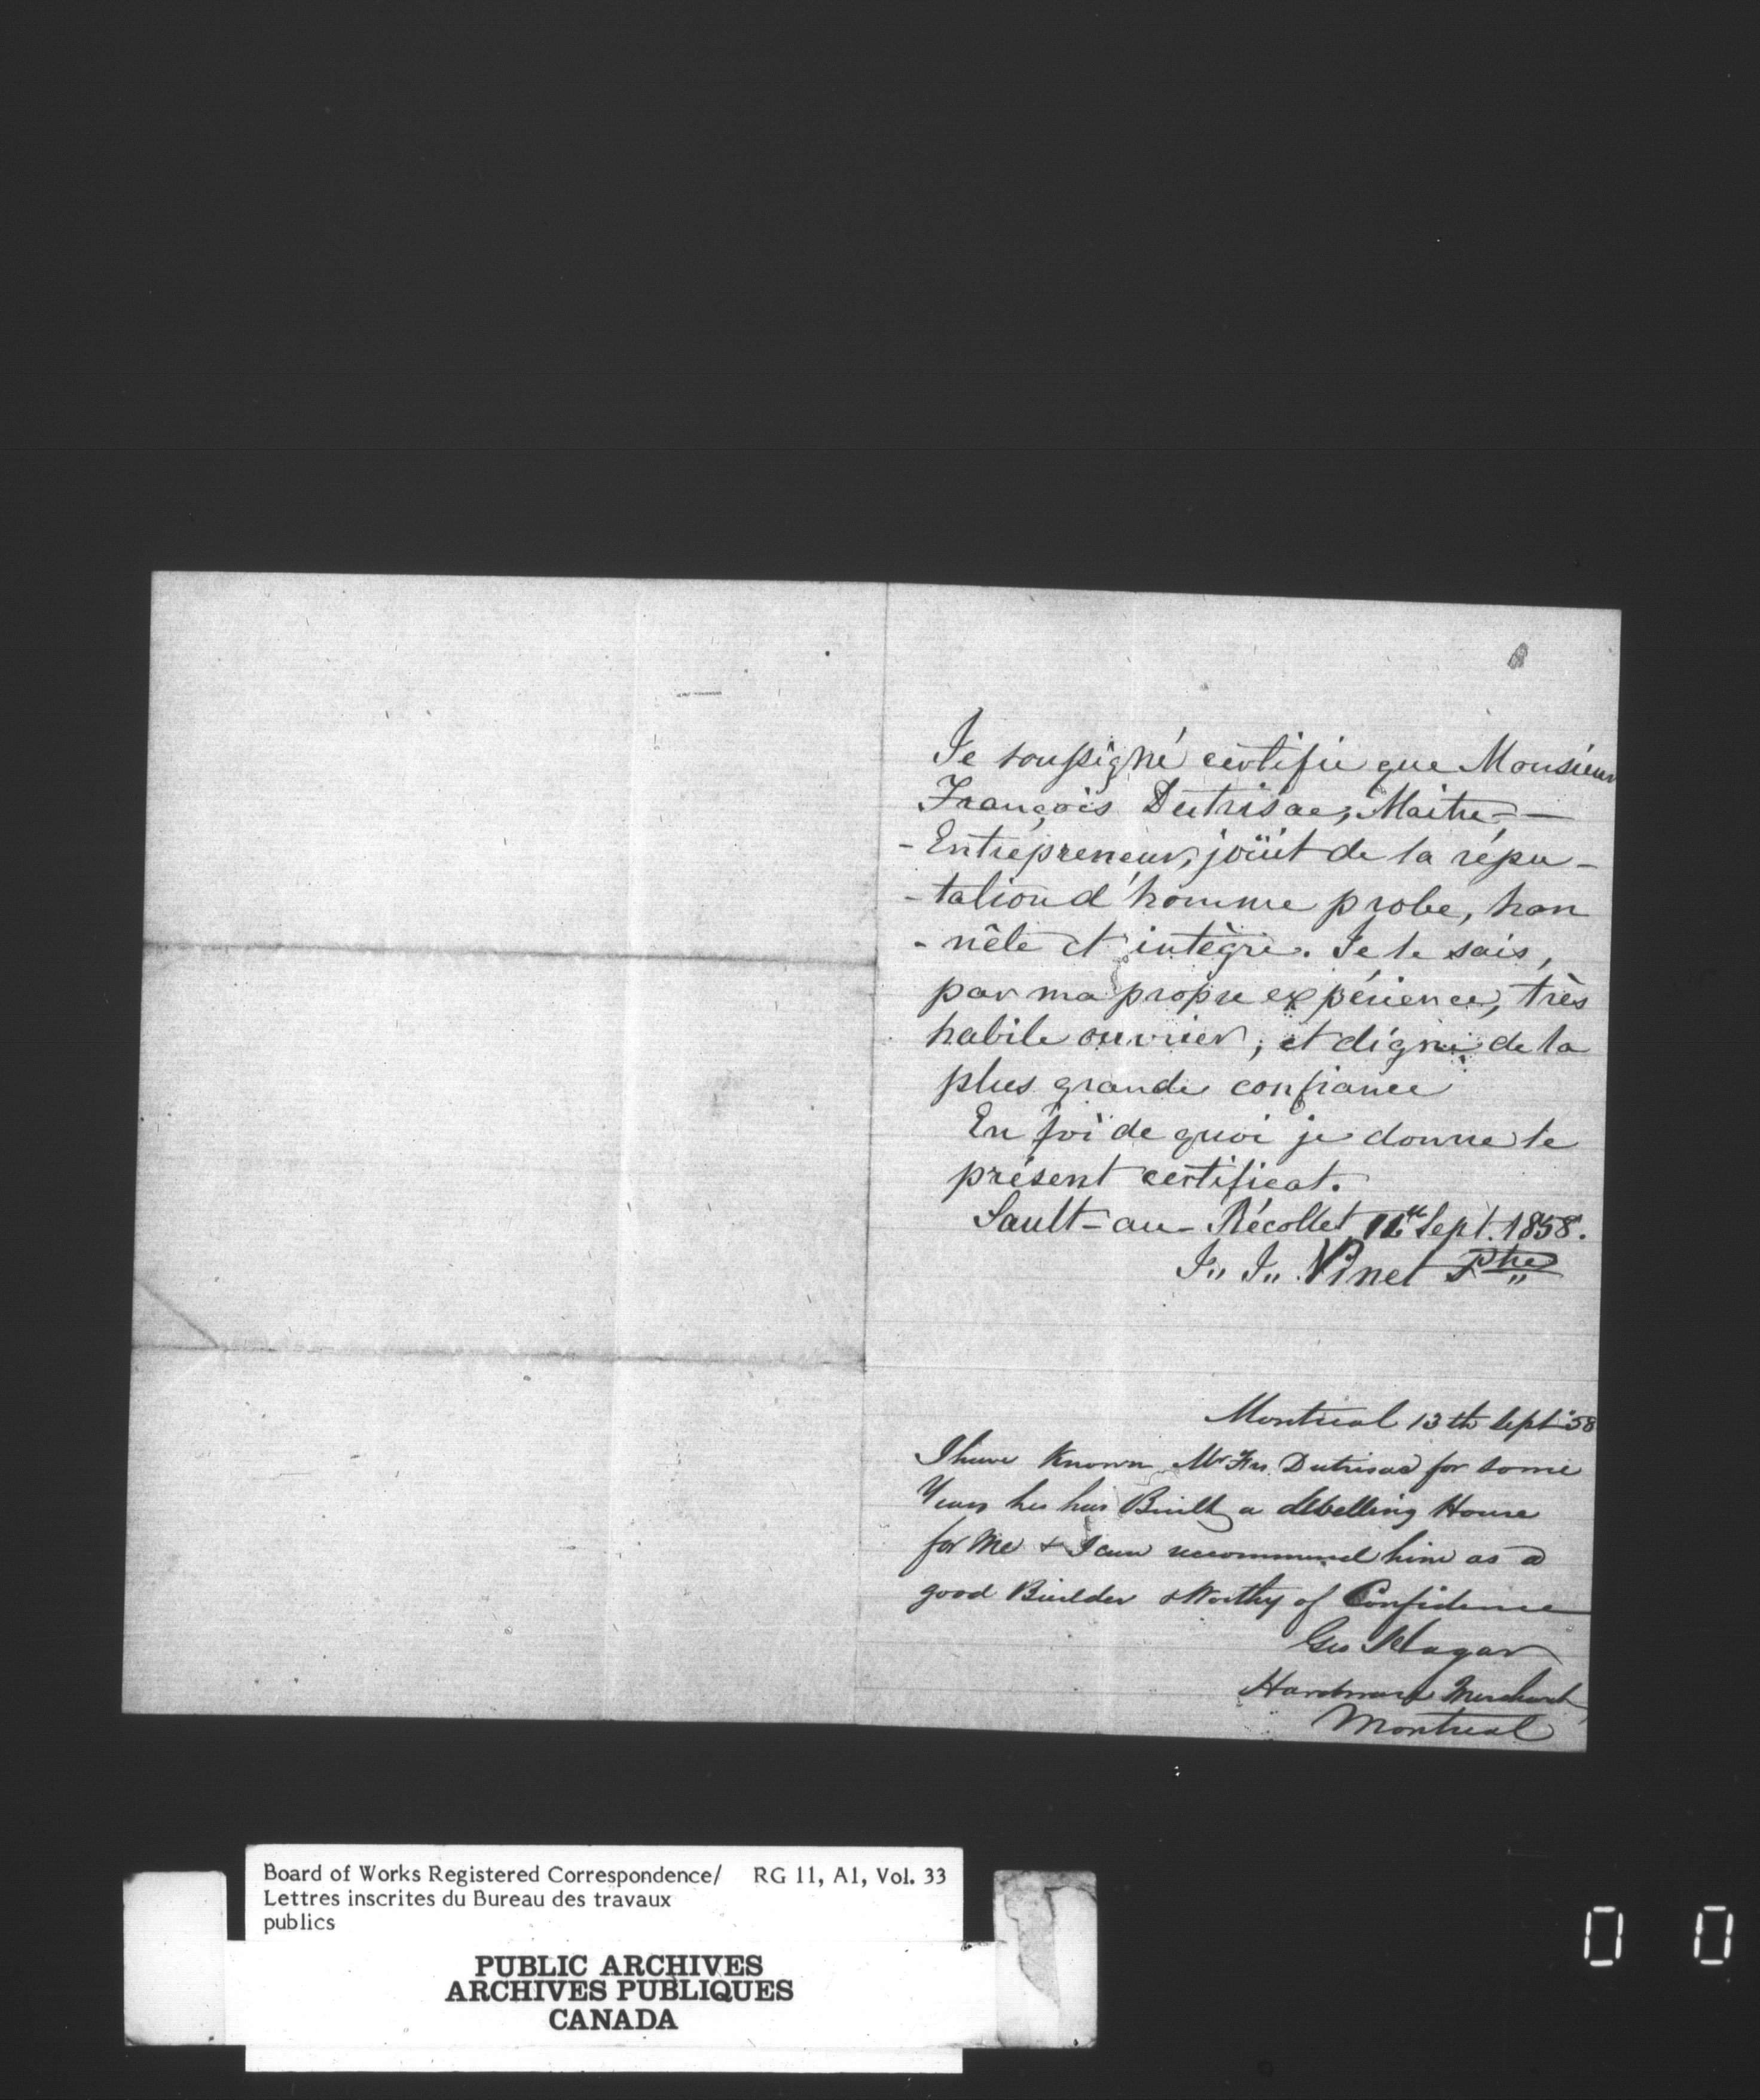 Je soussigné certifie que Monsieur
François Dutrisac, Maitre-
- Entrépreneur, joüit de la répu-
- tation d'homme probe, hon
- nête et intègre. Je le sais,
par ma propre expérience, très
habile ouvrier, et digne de la
plus grande confiance
En foi de quoi je donne le
présent certificat.
Sault-au-Récollet 12 Sept. 1858.
J,, J,, Vinet Ptre
Montreal 13th Sept 58
I have Known Mr Frs Dutrisac for some
Years he has Built a dwelling House
for Me & I can recommend him as a
good Builder & Worthy of Confidence
Geo Hagar
Hardware Merchant
Montreal
Board of Works Registered Correspondence/ RG 11, A1, Vol. 33
Lettres inscrites du Bureau des travaux
publics
PUBLIC ARCHIVES
ARCHIVES PUBLIQUES
CANADA
0 0